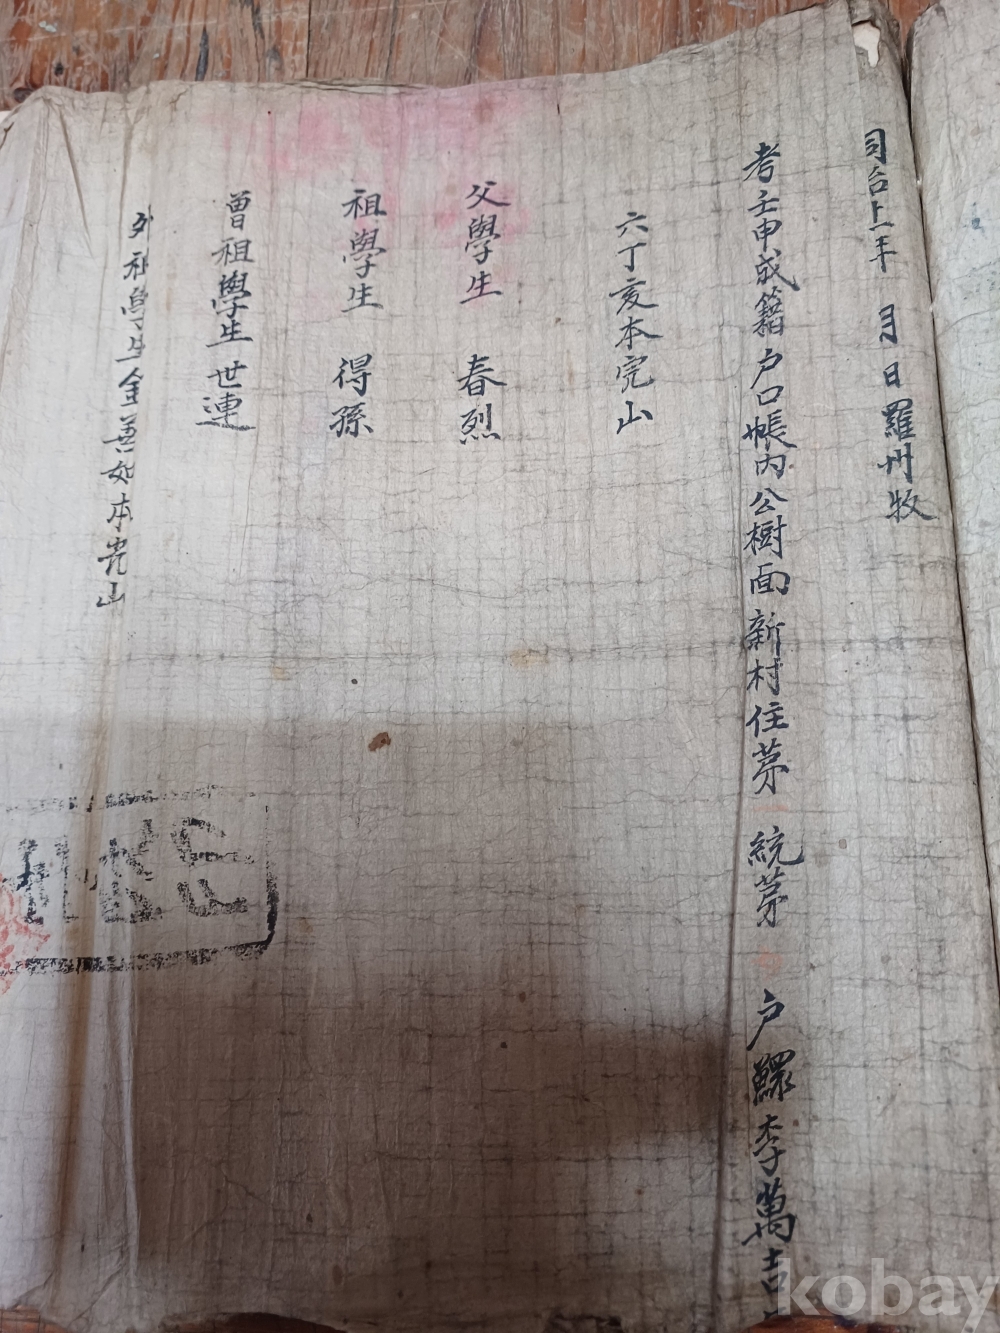 同治十一年 月 日羅州牧
考壬申成籍戶口帳內公樹面新村住苐一統苐 戶鰥李萬吉
六丁亥本完山
父學生 春烈
祖學生 得孫
曾祖學生世連
外祖學生金善如本完山
kobay